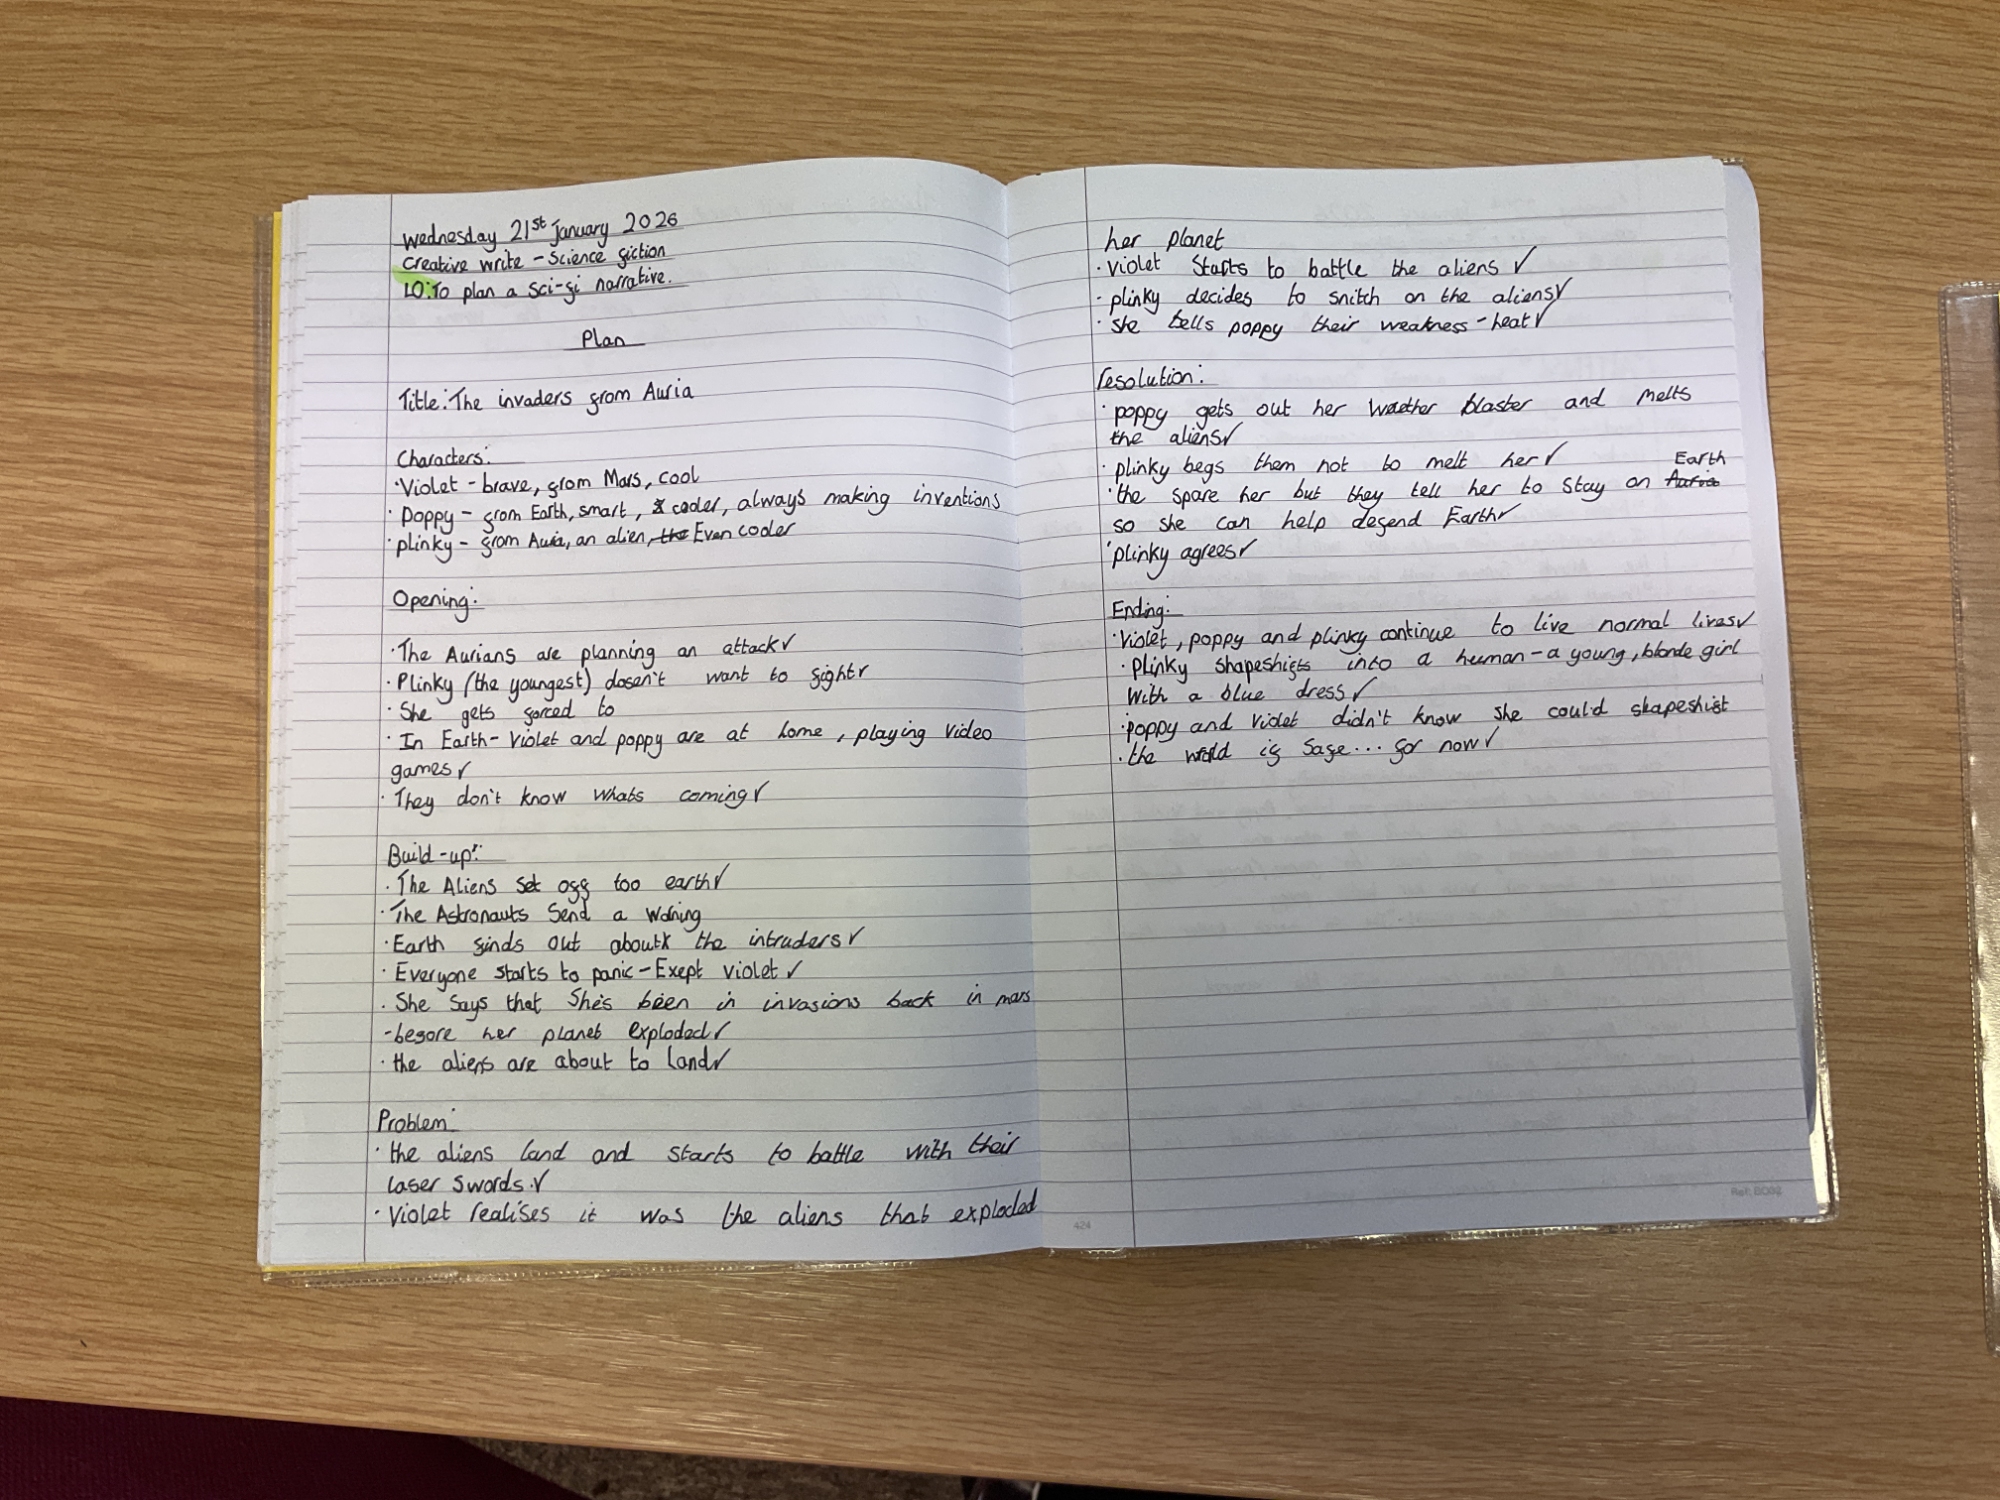 Wednesday 21st January 2026
Creative write - Science fiction
LO: To plan a sci-fi narrative.
Plan
Title: The invaders from Auria
Characters:
• Violet - brave, from Mars, cool
• Poppy - from Earth, smart, cooler, always making inventions
• plinky - from Auria, an alien, the Even cooler
Opening:
• The Aurians are planning an attack ✓
• Plinky (the youngest) dosen't want to fight ✓
• She gets forced to
• In Earth - Violet and poppy are at home, playing video
games ✓
• They don't know whats coming ✓
Build-up:
• The Aliens set off too earth ✓
• The Astronauts Send a Warning
• Earth finds out about the intruders ✓
• Everyone starts to panic - Exept violet ✓
• She says that She's been in invasions back in mars
- before her planet exploded ✓
• the aliens are about to land ✓
Problem:
• the aliens land and starts to battle with their
laser swords. ✓
• Violet realises it was the aliens that exploded
her planet
• violet Starts to battle the aliens ✓
• plinky decides to snitch on the aliens ✓
• she tells poppy their weakness - heat ✓
resolution:
• poppy gets out her weather blaster and melts
the aliens ✓
• plinky begs them not to melt her ✓
Earth
• the spare her but they tell her to stay on Auria
so she can help defend Earth ✓
• plinky agrees ✓
Ending:
• Violet, poppy and plinky continue to live normal lives ✓
• Plinky shapeshifts into a human - a young, blonde girl
with a blue dress ✓
• poppy and Violet didn't know she could shapeshift
• the world is safe... for now ✓
424